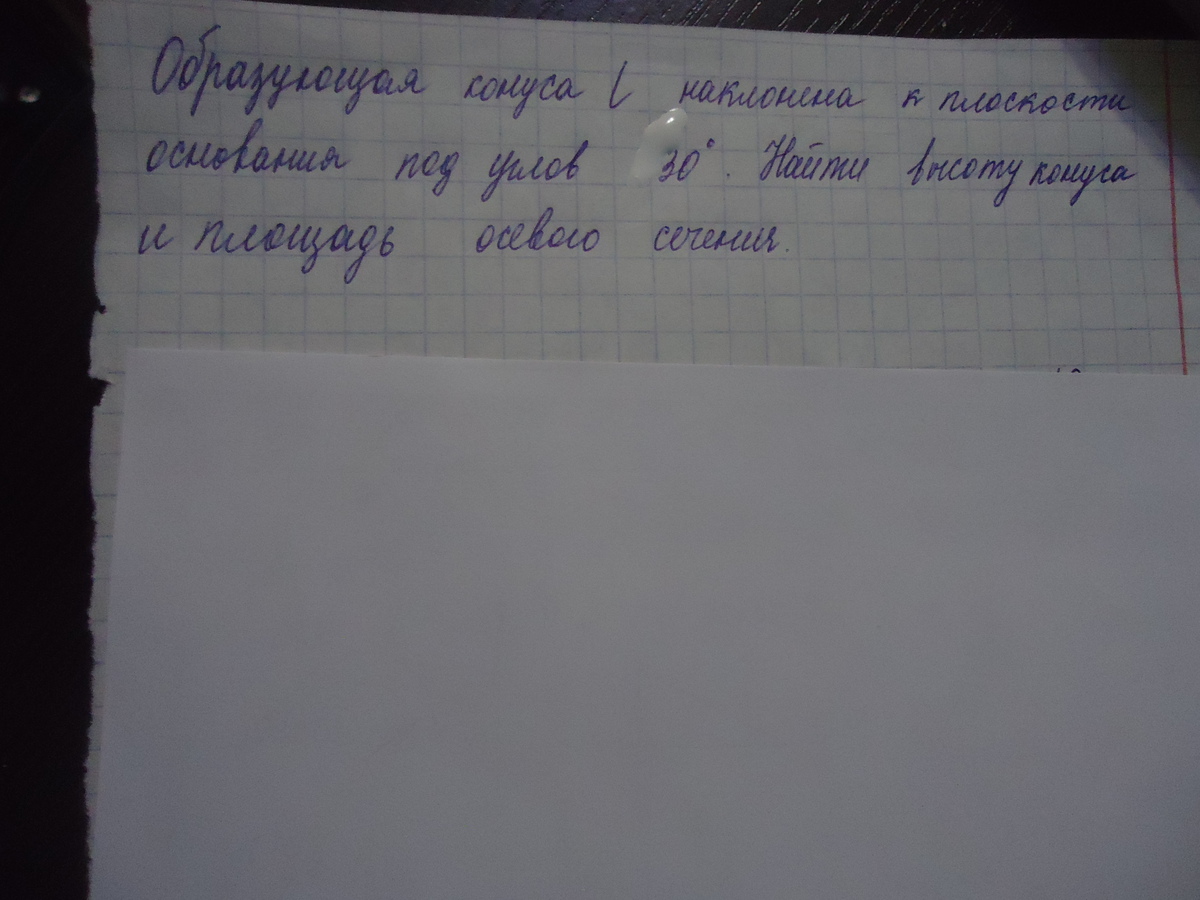 Образующая конуса L наклонена к плоскости
основания под углов 30°. Найти высоту конуса
и площадь осевого сечения.